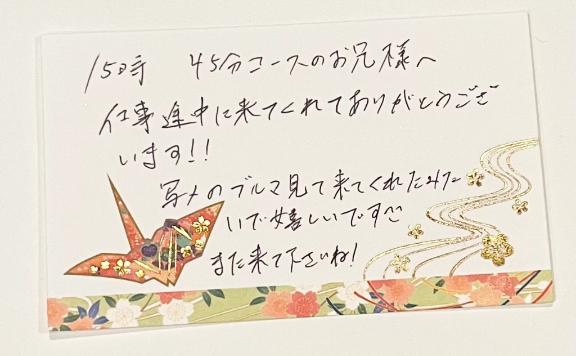 15時 45分コースのお兄様へ
仕事途中に来てくれてありがとうござ
います!!
写メのブルマ見て来てくれたみた
いで嬉しいです^^
また来て下さいね!